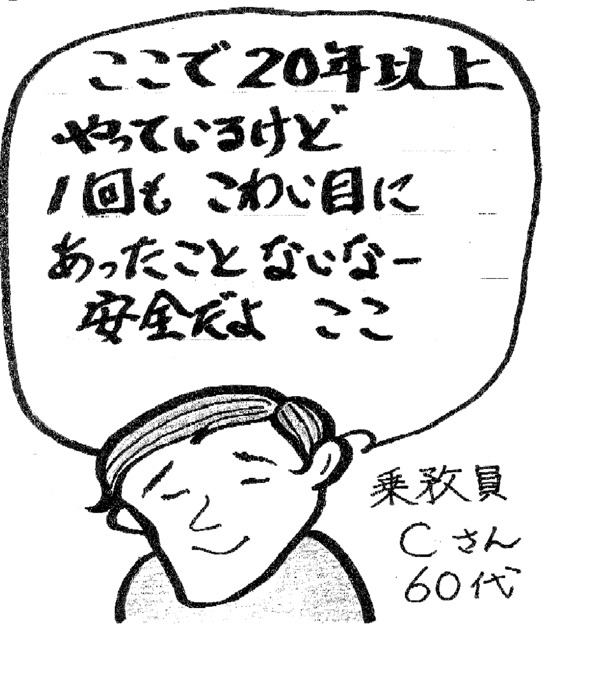 ここで20年以上
やっているけど
1回も こわい目に
あったこと ないなー
安全だよ ここ
乗務員
Cさん
60代